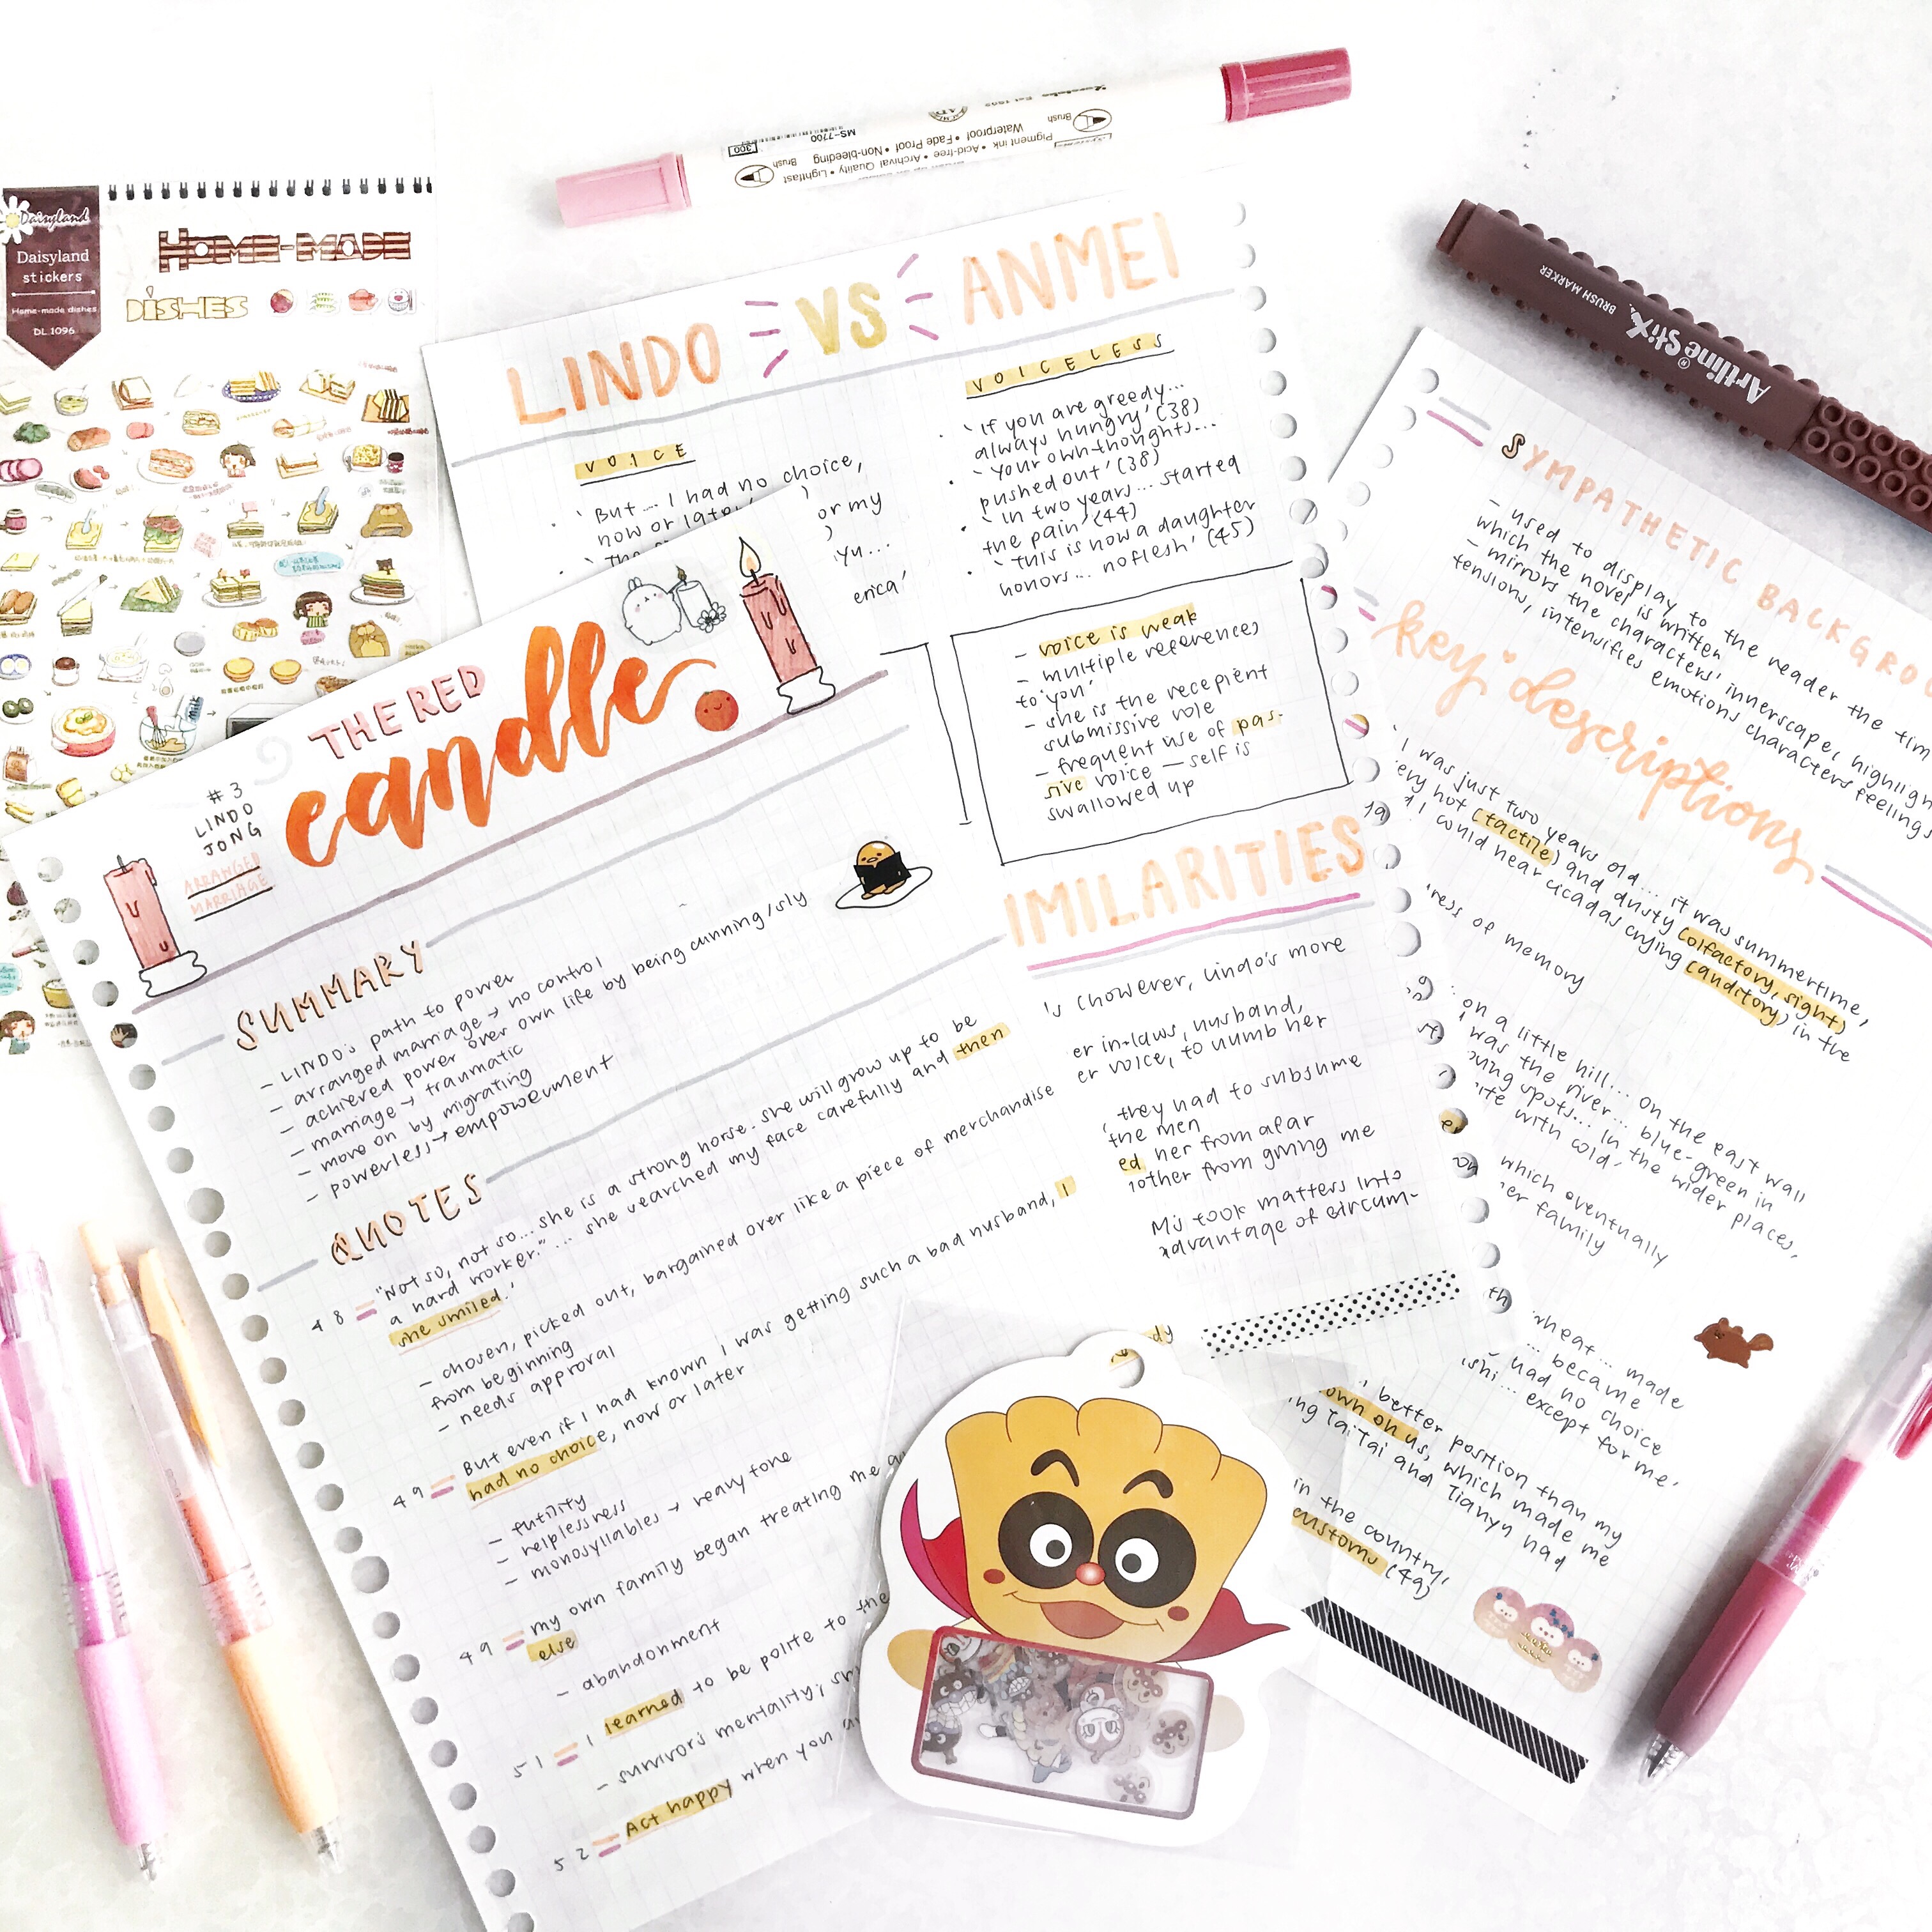 Daisyland
Daisyland
stickers
Home-made dishes
DL.1096
HOME-MADE
DISHES
Pigment ink • Acid-free • Archival Quality • Lightfast
Waterproof • Fade Proof • Non-bleeding
Brush
Brush
MS-7700
300
Artline StiX
BRUSH MARKER
LINDO VS ANMEI
VOICE
• 'But.... I had no choice,
now or later
or my
yu...
erica'
VOICELESS
• 'If you are greedy...
always hungry' (38)
• 'your own thoughts...
pushed out' (38)
• 'in two years... started
the pain' (44)
• 'this is now a daughter
honors... no flesh' (45)
- voice is weak
- multiple references
to 'you'
- she is the recepient
submissive role
- frequent use of pas-
sive voice — self is
swallowed up
IMILARITIES
's (however, Lindo's more
er in-laws, husband,
er voice, to numb her
they had to subsume
the men
ed her from afar
other from giving me
took matters into
advantage of circum-
THE RED
candle
#3
LINDO
JONG
ARRANGED
MARRIAGE
SUMMARY
- LINDO's path to power
- arranged marriage → no control
- achieved power over own life by being cunning/sly
- marriage → traumatic
- move on by migrating
- powerless → empowerment
QUOTES
48 = "Not so, not so... she is a strong horse. she will grow up to be
a hard worker."... she searched my face carefully and then
she smiled.'
- chosen, picked out, bargained over like a piece of merchandise
from beginning
- needs approval
49 = But even if I had known I was getting such a bad husband, I
had no choice, now or later
- futility
- helplessness
- monosyllables → heavy tone
49 = my own family began treating me
else
- abandonment
51 = I learned to be polite to the
- survivor's mentality;
52 = Act happy when you
SYMPATHETIC BACKGRO
- used to display to the reader the tim
which the novel is written
- mirrors the characters' innerscape, highligh
tensions, intensifies emotions characters feelings
key descriptions
I was just two years old... it was summertime,
ery hot (tactile) and dusty (olfactory, sight)
I could hear cicadas crying (auditory) in the
ness of memory
on a little hill... on the east wall
was the river... blue-green in
oung spots... in the wider places,
ite with cold.
which eventually
her family
wheat... made
... became
had no choice
shi... except for me.'
better position than my
own on us, which made me
ing TaiTai and Tianyu had
in the country,
customs (49)